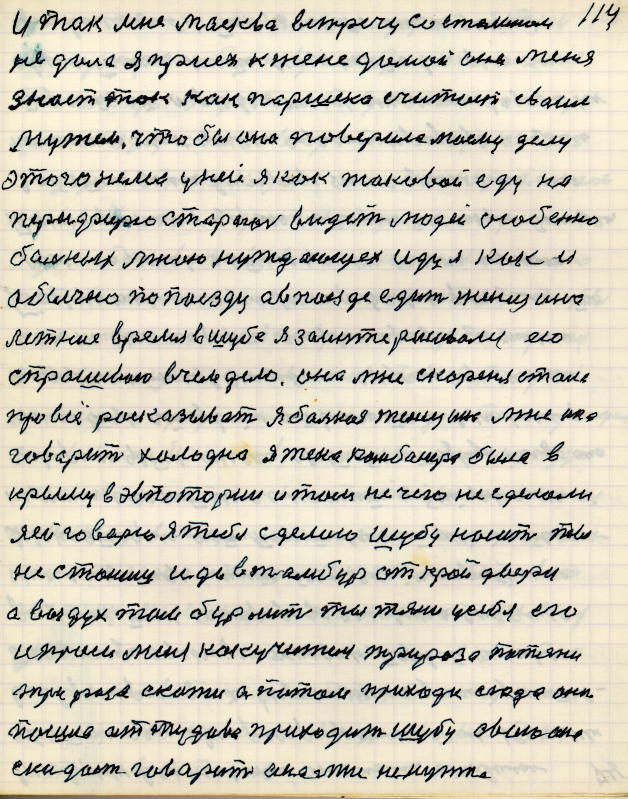 114
И так мне Масква встречу со Сталином
не дала я приех к жене домой она меня
знает так как паршека считает своим
мужем, что бы она поверила маему делу
этого нема у ней я как таковой еду на
перидрыо старагои видет людей особенно
больных мною нуждающех иду я как и
обычно по поезду а в поезде едит женщина
летние время в шубе я заинтересовалы ею
страшиваю в чем дело. она мне скареня стала
про всё расказыват я больная женщина мне она
говарит холодна я жена комбанера была в
крыму в эвпотории и там не чего не сделали
я ей говарю я тебя сделаю шубу насит ты
не станиш иди в тамбур открой двери
а воздух там бурлит ты тяни усебя его
и праси меня как учителя природа потяни
три раза скажи а патом приходи сюда она
пошла аттудова приходит шубу свою она
скидает говарит ана мне не нужна